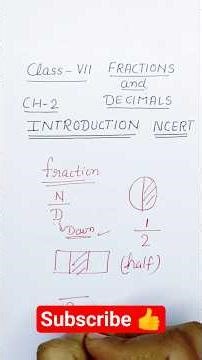 Class - VII FRACTIONS
and
CH-2 DECIMALS
INTRODUCTION NCERT
fraction
N
D
Down
1
2
(half)
Subscribe 👍